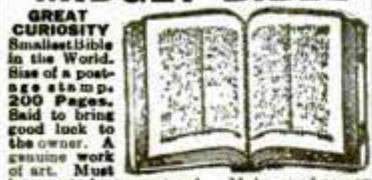 GREAT
CURIOSITY
Smallest Bible
in the World.
Size of a post-
age stamp.
200 Pages.
Said to bring
good luck to
the owner. A
genuine work
of art. Must